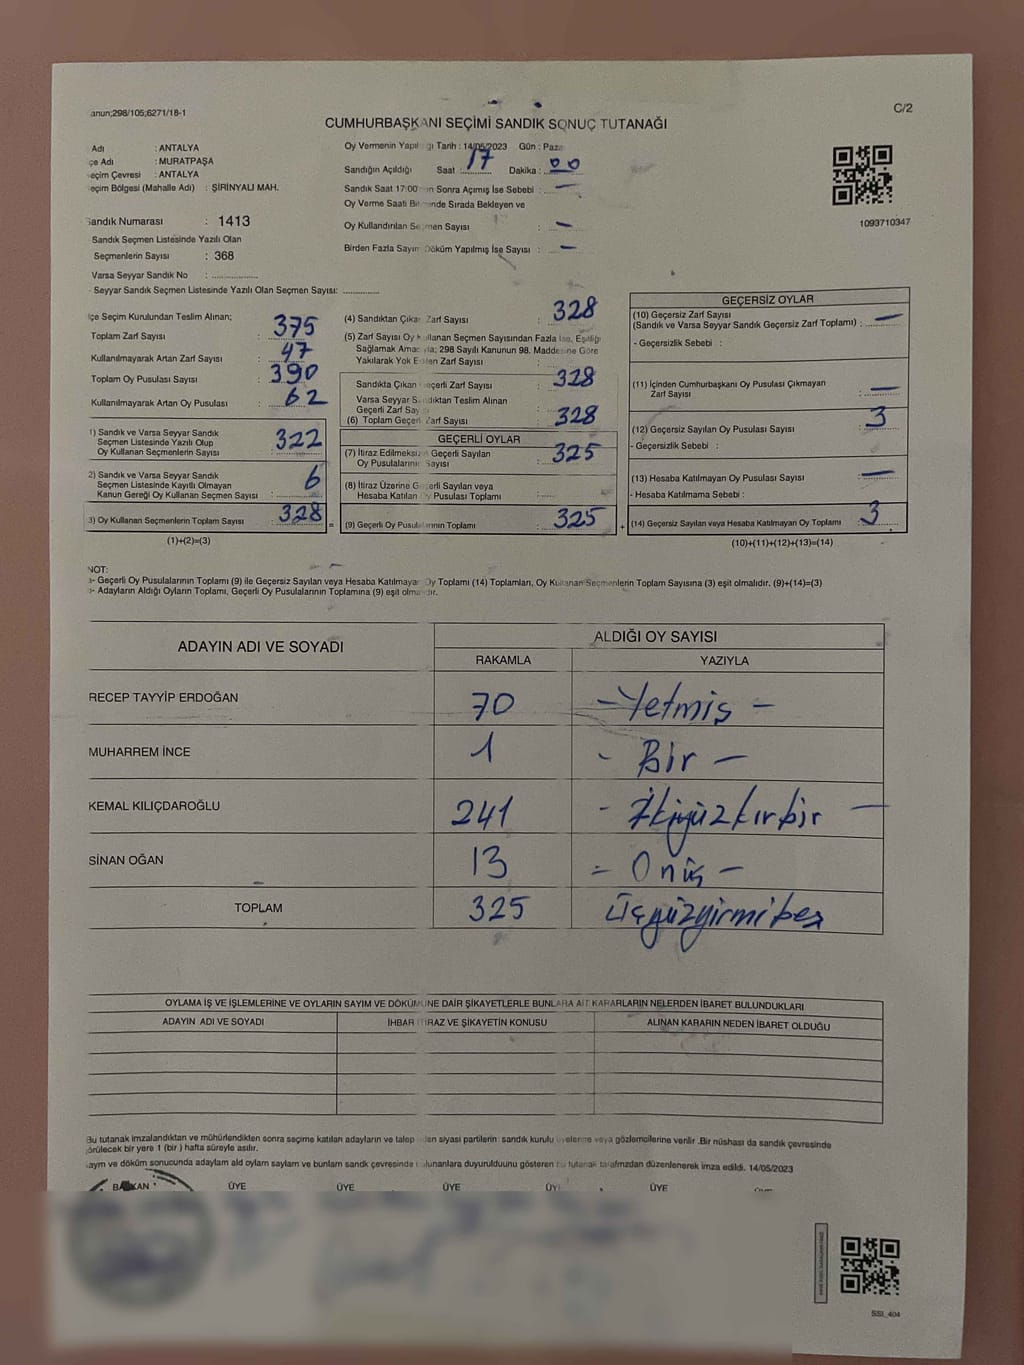 anun;298/105;6271/18-1
C/2
CUMHURBAŞKANI SEÇİMİ SANDIK SONUÇ TUTANAĞI
Adı : ANTALYA
çe Adı : MURATPAŞA
eçim Çevresi : ANTALYA
eçim Bölgesi (Mahalle Adı) : ŞİRİNYALI MAH.
Sandık Numarası : 1413
Sandık Seçmen Listesinde Yazılı Olan
Seçmenlerin Sayısı : 368
Varsa Seyyar Sandık No : ..............
- Seyyar Sandık Seçmen Listesinde Yazılı Olan Seçmen Sayısı: ............
Oy Vermenin Yapıl ğı Tarih : 14/05/2023 Gün : Paza
Sandığın Açıldığı Saat 17 Dakika : 00
Sandık Saat 17:00 n Sonra Açımış İse Sebebi : —
Oy Verme Saati Bi inde Sırada Bekleyen ve
Oy Kullandırılan Seçmen Sayısı : —
Birden Fazla Sayım Döküm Yapılmış İse Sayısı : —
1093710347
lçe Seçim Kurulundan Teslim Alınan;
Toplam Zarf Sayısı : 375
Kullanılmayarak Artan Zarf Sayısı : 47
Toplam Oy Pusulası Sayısı : 390
Kullanılmayarak Artan Oy Pusulası : 62
1) Sandık ve Varsa Seyyar Sandık
Seçmen Listesinde Yazılı Olup
Oy Kullanan Seçmenlerin Sayısı : 322
2) Sandık ve Varsa Seyyar Sandık
Seçmen Listesinde Kayıtlı Olmayan
Kanun Gereği Oy Kullanan Seçmen Sayısı : 6
3) Oy Kullanan Seçmenlerin Toplam Sayısı : 328
(1)+(2)=(3)
(4) Sandıktan Çıkan Zarf Sayısı : 328
(5) Zarf Sayısı Oy Kullanan Seçmen Sayısından Fazla İse, Eşitliği
Sağlamak Amacıyla; 298 Sayılı Kanunun 98. Maddesine Göre
Yakılarak Yok Edilen Zarf Sayısı :
Sandıkta Çıkan Geçerli Zarf Sayısı : 328
Varsa Seyyar Sandıktan Teslim Alınan
Geçerli Zarf Sayısı :
(6) Toplam Geçerli Zarf Sayısı : 328
GEÇERLİ OYLAR
(7) İtiraz Edilmeksizin Geçerli Sayılan
Oy Pusulalarının Sayısı : 325
(8) İtiraz Üzerine Geçerli Sayılan veya
Hesaba Katılan Oy Pusulası Toplamı :.....
(9) Geçerli Oy Pusulalarının Toplamı : 325
GEÇERSİZ OYLAR
(10) Geçersiz Zarf Sayısı
(Sandık ve Varsa Seyyar Sandık Geçersiz Zarf Toplamı) : —
- Geçersizlik Sebebi :
(11) İçinden Cumhurbaşkanı Oy Pusulası Çıkmayan
Zarf Sayısı : —
(12) Geçersiz Sayılan Oy Pusulası Sayısı : 3
- Geçersizlik Sebebi :
(13) Hesaba Katılmayan Oy Pusulası Sayısı : —
- Hesaba Katılmama Sebebi :
(14) Geçersiz Sayılan veya Hesaba Katılmayan Oy Toplamı : 3
(10)+(11)+(12)+(13)=(14)
NOT:
a- Geçerli Oy Pusulalarının Toplamı (9) ile Geçersiz Sayılan veya Hesaba Katılmayan Oy Toplamı (14) Toplamları, Oy Kullanan Seçmenlerin Toplam Sayısına (3) eşit olmalıdır. (9)+(14)=(3)
b- Adayların Aldığı Oyların Toplamı, Geçerli Oy Pusulalarının Toplamına (9) eşit olmalıdır.
ADAYIN ADI VE SOYADI ALDIĞI OY SAYISI
RAKAMLA YAZIYLA
RECEP TAYYİP ERDOĞAN 70 -Yetmiş -
MUHARREM İNCE 1 - Bir -
KEMAL KILIÇDAROĞLU 241 - İkiyüzkırbir -
SİNAN OĞAN 13 = Onüç -
TOPLAM 325 Üçyüzyirmibeş
OYLAMA İŞ VE İŞLEMLERİNE VE OYLARIN SAYIM VE DÖKÜMÜNE DAİR ŞİKAYETLERLE BUNLARA AİT KARARLARIN NELERDEN İBARET BULUNDUKLARI
ADAYIN ADI VE SOYADI İHBAR İTİRAZ VE ŞİKAYETİN KONUSU ALINAN KARARIN NEDEN İBARET OLDUĞU
Bu tutanak imzalandıktan ve mühürlendikten sonra seçime katılan adayların ve talep eden siyasi partilerin sandık kurulu üyelerine veya gözlemcilerine verilir .Bir nüshası da sandık çevresinde
görülecek bir yere 1 (bir ) hafta süreyle asılır.
ayım ve döküm sonucunda adaylam ald oylam saylam ve bunlam sandık çevresinde bulunanlara duyurulduunu gösteren bu tutanak tarafmzdan düzenlenerek imza edildi. 14/05/2023
BAŞKAN ÜYE ÜYE ÜYE ÜYE ÜYE
SSI_404